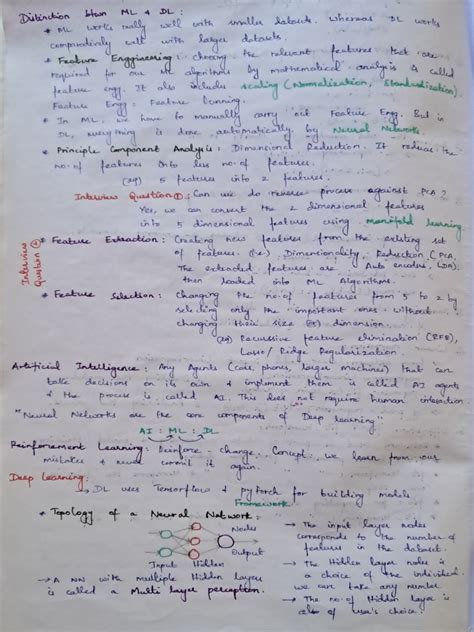 Distinction btwn ML & DL :
* ML works really well with smaller datasets. whereas DL works
comparatively well with larger datasets.
* Feature Enggineering : choosing the relevant features that are
required for our ML algorithms by mathematical analysis is called
feature engg. It also includes scaling (Normalization, Standardization).
Feature Engg : Feature
* In ML, we have to manually carry out Feature Engg. But in
DL, everything is done automatically by Neural Networks
* Principle Component Analysis : Dimensional Reduction. It reduces the
no. of features into less no. of features.
(eg) 5 features into 2 features.
Interview Question ① : Can we do reverse process against PCA?
Yes, we can convert the 2 dimensional features
into 5 dimensional features using Manifold learning
Interview Question ②
* Feature Extraction : Creating new features from the existing set
of features. (i.e) Dimensionality Reduction (PCA,
The extracted features are Auto encoders, LDA);
then loaded into ML Algorithms.
* Feature Selection : changing the no. of features from 5 to 2 by
selecting only the important ones without
changing their size (or) dimension.
(eg) Recussive feature elimination (RFE),
Lasso/ Ridge Regularization
Artificial Intelligence : Any Agents (cars, phones, larger machines) that can
take decisions on its own & implement them is called AI agents
& the process is called AI. This does not require human interaction
"Neural Networks are the core components of Deep learning"
AI : ML : DL
Reinforcement Learning : Reinforce - change. Concept : we learn from our
mistakes & never commit it again.
Deep Learning :
DL uses Tensorflow & PyTorch for building models
Framework
* Topology of a Neural Network :
Nodes
Output
Input Hidden
→ A NN with multiple Hidden layers
is called a Multi layer perception.
→ The input layer nodes
corresponds to the number of
features in the dataset.
→ The Hidden layer nodes is
a choice of the individual.
we can take any number
→ The no. of Hidden layer is
also of user's choice.